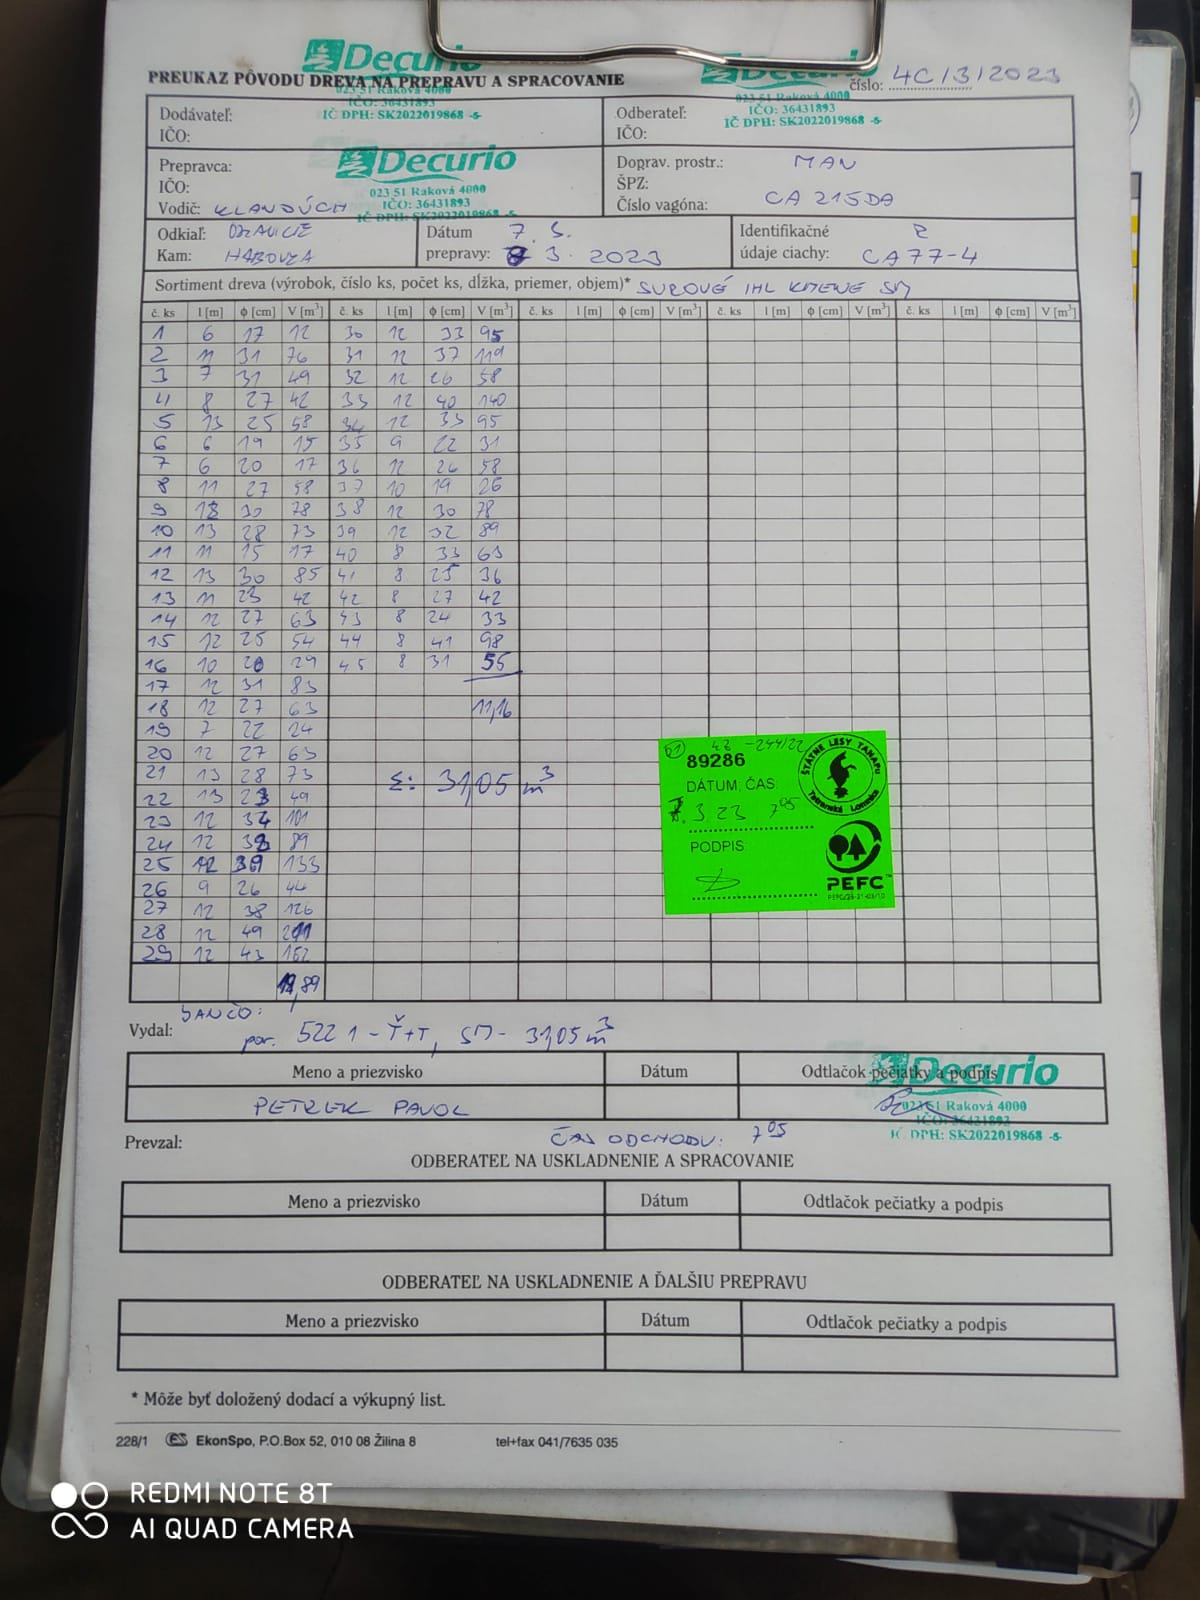 Decurio
Decurio
PREUKAZ PÔVODU DREVA NA PREPRAVU A SPRACOVANIE
číslo: 4C/3/2023
023 51 Raková 4000
IČO: 36431893
IČ DPH: SK2022019868 -5-
023 51 Raková 4000
IČO: 36431893
IČ DPH: SK2022019868 -5-
Dodávateľ:
IČO:
Odberateľ:
IČO:
Prepravca:
IČO:
Vodič: KLANDÚCH
Decurio
023 51 Raková 4000
IČO: 36431893
IČ DPH: SK2022019868 -5-
Doprav. prostr.: MAN
ŠPZ:
Číslo vagóna: CA 215DA
Odkiaľ: ORAVICE
Kam: HABOVKA
Dátum 7. 3.
prepravy: 3. 2023
Identifikačné
údaje ciachy: CA77-4
Sortiment dreva (výrobok, číslo ks, počet ks, dĺžka, priemer, objem)* SUROVÉ IHL KMENE SM
č. ks l [m] ϕ [cm] V [m³] č. ks l [m] ϕ [cm] V [m³] č. ks l [m] ϕ [cm] V [m³] č. ks l [m] ϕ [cm] V [m³] č. ks l [m] ϕ [cm] V [m³]
1 6 17 12 30 12 33 95
2 11 31 76 31 12 37 119
3 7 31 49 32 12 26 58
4 8 27 42 33 12 40 140
5 13 25 58 34 12 33 95
6 6 19 15 35 9 22 31
7 6 20 17 36 12 26 58
8 11 27 58 37 10 19 26
9 12 30 78 38 12 30 78
10 13 28 73 39 12 32 89
11 11 15 17 40 8 33 63
12 13 30 85 41 8 25 36
13 11 23 42 42 8 27 42
14 12 27 63 43 8 24 33
15 12 25 54 44 8 41 98
16 10 20 29 45 8 31 55
17 12 31 83
18 12 27 63 11,16
19 7 22 24
20 12 27 63
21 13 28 73 Σ: 31,05 m³
22 13 23 49
23 12 34 101
24 12 32 89
25 12 39 133
26 9 26 44
27 12 38 126
28 12 49 201
29 12 43 162
19,89
89286
DÁTUM, ČAS:
7. 3 23 7⁰⁵
PODPIS:
ŠTÁTNE LESY TANAPU
Tatranská Lomnica
PEFC™
JANČO:
Vydal:
por. 522 1 - Ť+T, SM - 31,05 m³
Meno a priezvisko Dátum Odtlačok pečiatky a podpis
Decurio
PETREK PAVOL
023 51 Raková 4000
IČO: 36431893
IČ DPH: SK2022019868 -5-
Prevzal:
ČAS ODCHODU: 7⁰⁵
ODBERATEĽ NA USKLADNENIE A SPRACOVANIE
Meno a priezvisko Dátum Odtlačok pečiatky a podpis
ODBERATEĽ NA USKLADNENIE A ĎALŠIU PREPRAVU
Meno a priezvisko Dátum Odtlačok pečiatky a podpis
* Môže byť doložený dodací a výkupný list.
228/1 ES EkonSpo, P.O.Box 52, 010 08 Žilina 8 tel+fax 041/7635 035
REDMI NOTE 8T
AI QUAD CAMERA